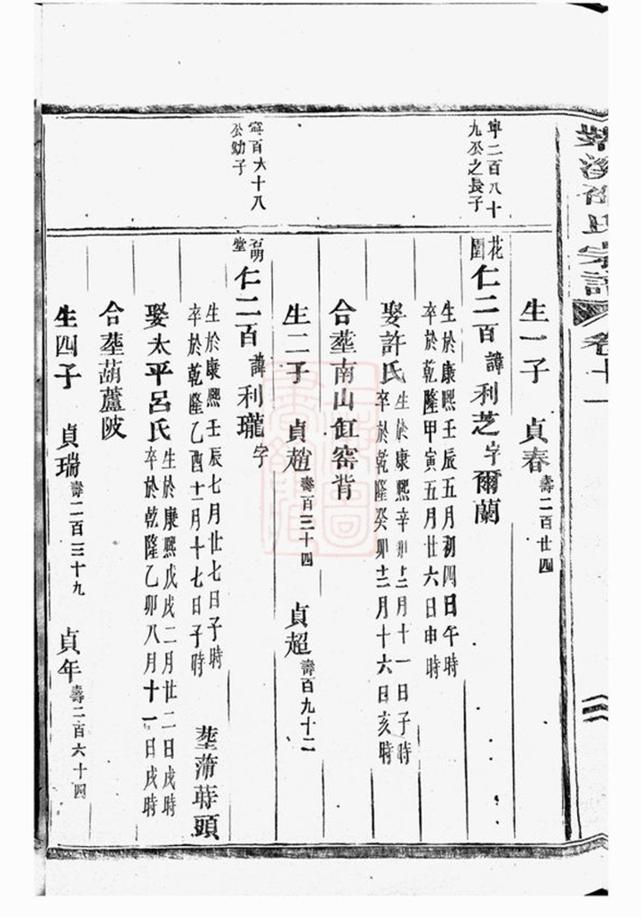 宗譜 卷十一
二
生一子 貞春 壽二百廿四
寧二百八十九公之長子
花園 仁二百 諱利芝 字爾蘭
生於康熙壬辰五月初四日午時
卒於乾隆甲寅五月廿六日申時
娶許氏 生於康熙辛卯三月十一日子時
卒於乾隆癸卯十二月十六日亥時
合塟南山缸窰背
生二子 貞趙 壽百三十四 貞超 壽百九十二
寧百六十八公幼子
堂 仁二百 諱利瓏 字
生於康熙壬辰七月廿七日子時
卒於乾隆乙酉十二月十七日子時 塟蒲蒔頭
娶太平呂氏 生於康熙戊戌二月廿二日戌時
卒於乾隆乙卯八月十一日戌時
合塟葫蘆陂
生四子 貞瑞 壽二百三十九 貞年 壽二百六十四